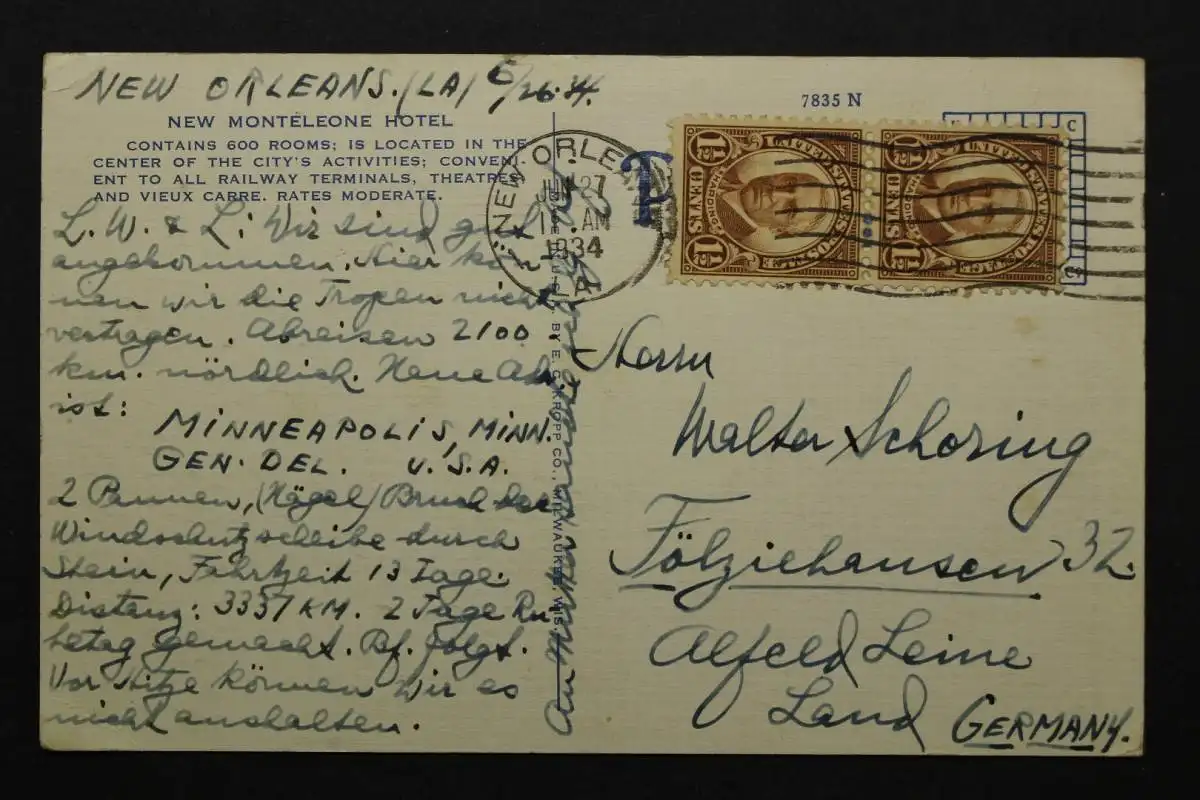 NEW ORLEANS. (LA) 6/26.34.
NEW MONTELEONE HOTEL
CONTAINS 600 ROOMS; IS LOCATED IN THE
CENTER OF THE CITY'S ACTIVITIES; CONVENI-
ENT TO ALL RAILWAY TERMINALS, THEATRES
AND VIEUX CARRE. RATES MODERATE.
L. W. & L: Wir sind gut
angekommen. Hier kön
nen wir die Tropen nicht
vertragen. Abreisen 2100
km. nördlich. Neue Adr.
ist:
MINNEAPOLIS, MINN.
GEN. DEL. U.S.A.
2 Pannen, (Nägel) Bruch der
Windschutzscheibe durch
Stein, Fahrtzeit 13 Tage.
Distanz: 3337 KM. 2 Tage Ru
hetag gemacht. Bf. folgt.
Vor Hitze können wir es
nicht aushalten.
An
BY E. C. KROPP CO., MILWAUKEE, WIS.
7835 N
NEW ORLEANS
JUN 27
AM
1934
LA
T
UNITED STATES POSTAGE
HARDING
1½ CENTS 1½
UNITED STATES POSTAGE
HARDING
1½ CENTS 1½
Herrn
Walter Schöring
Fölziehausen 32.
Alfeld Leine
Land
GERMANY.